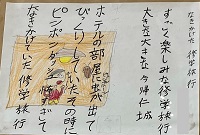 なきかけた 修学旅行
すごく楽しみな修学旅行
大きな大きな今帰仁城
ホテルの部屋虫が出て
びっくりしていたその時に
ピンポンダッシュ
なきかけていた修学旅行